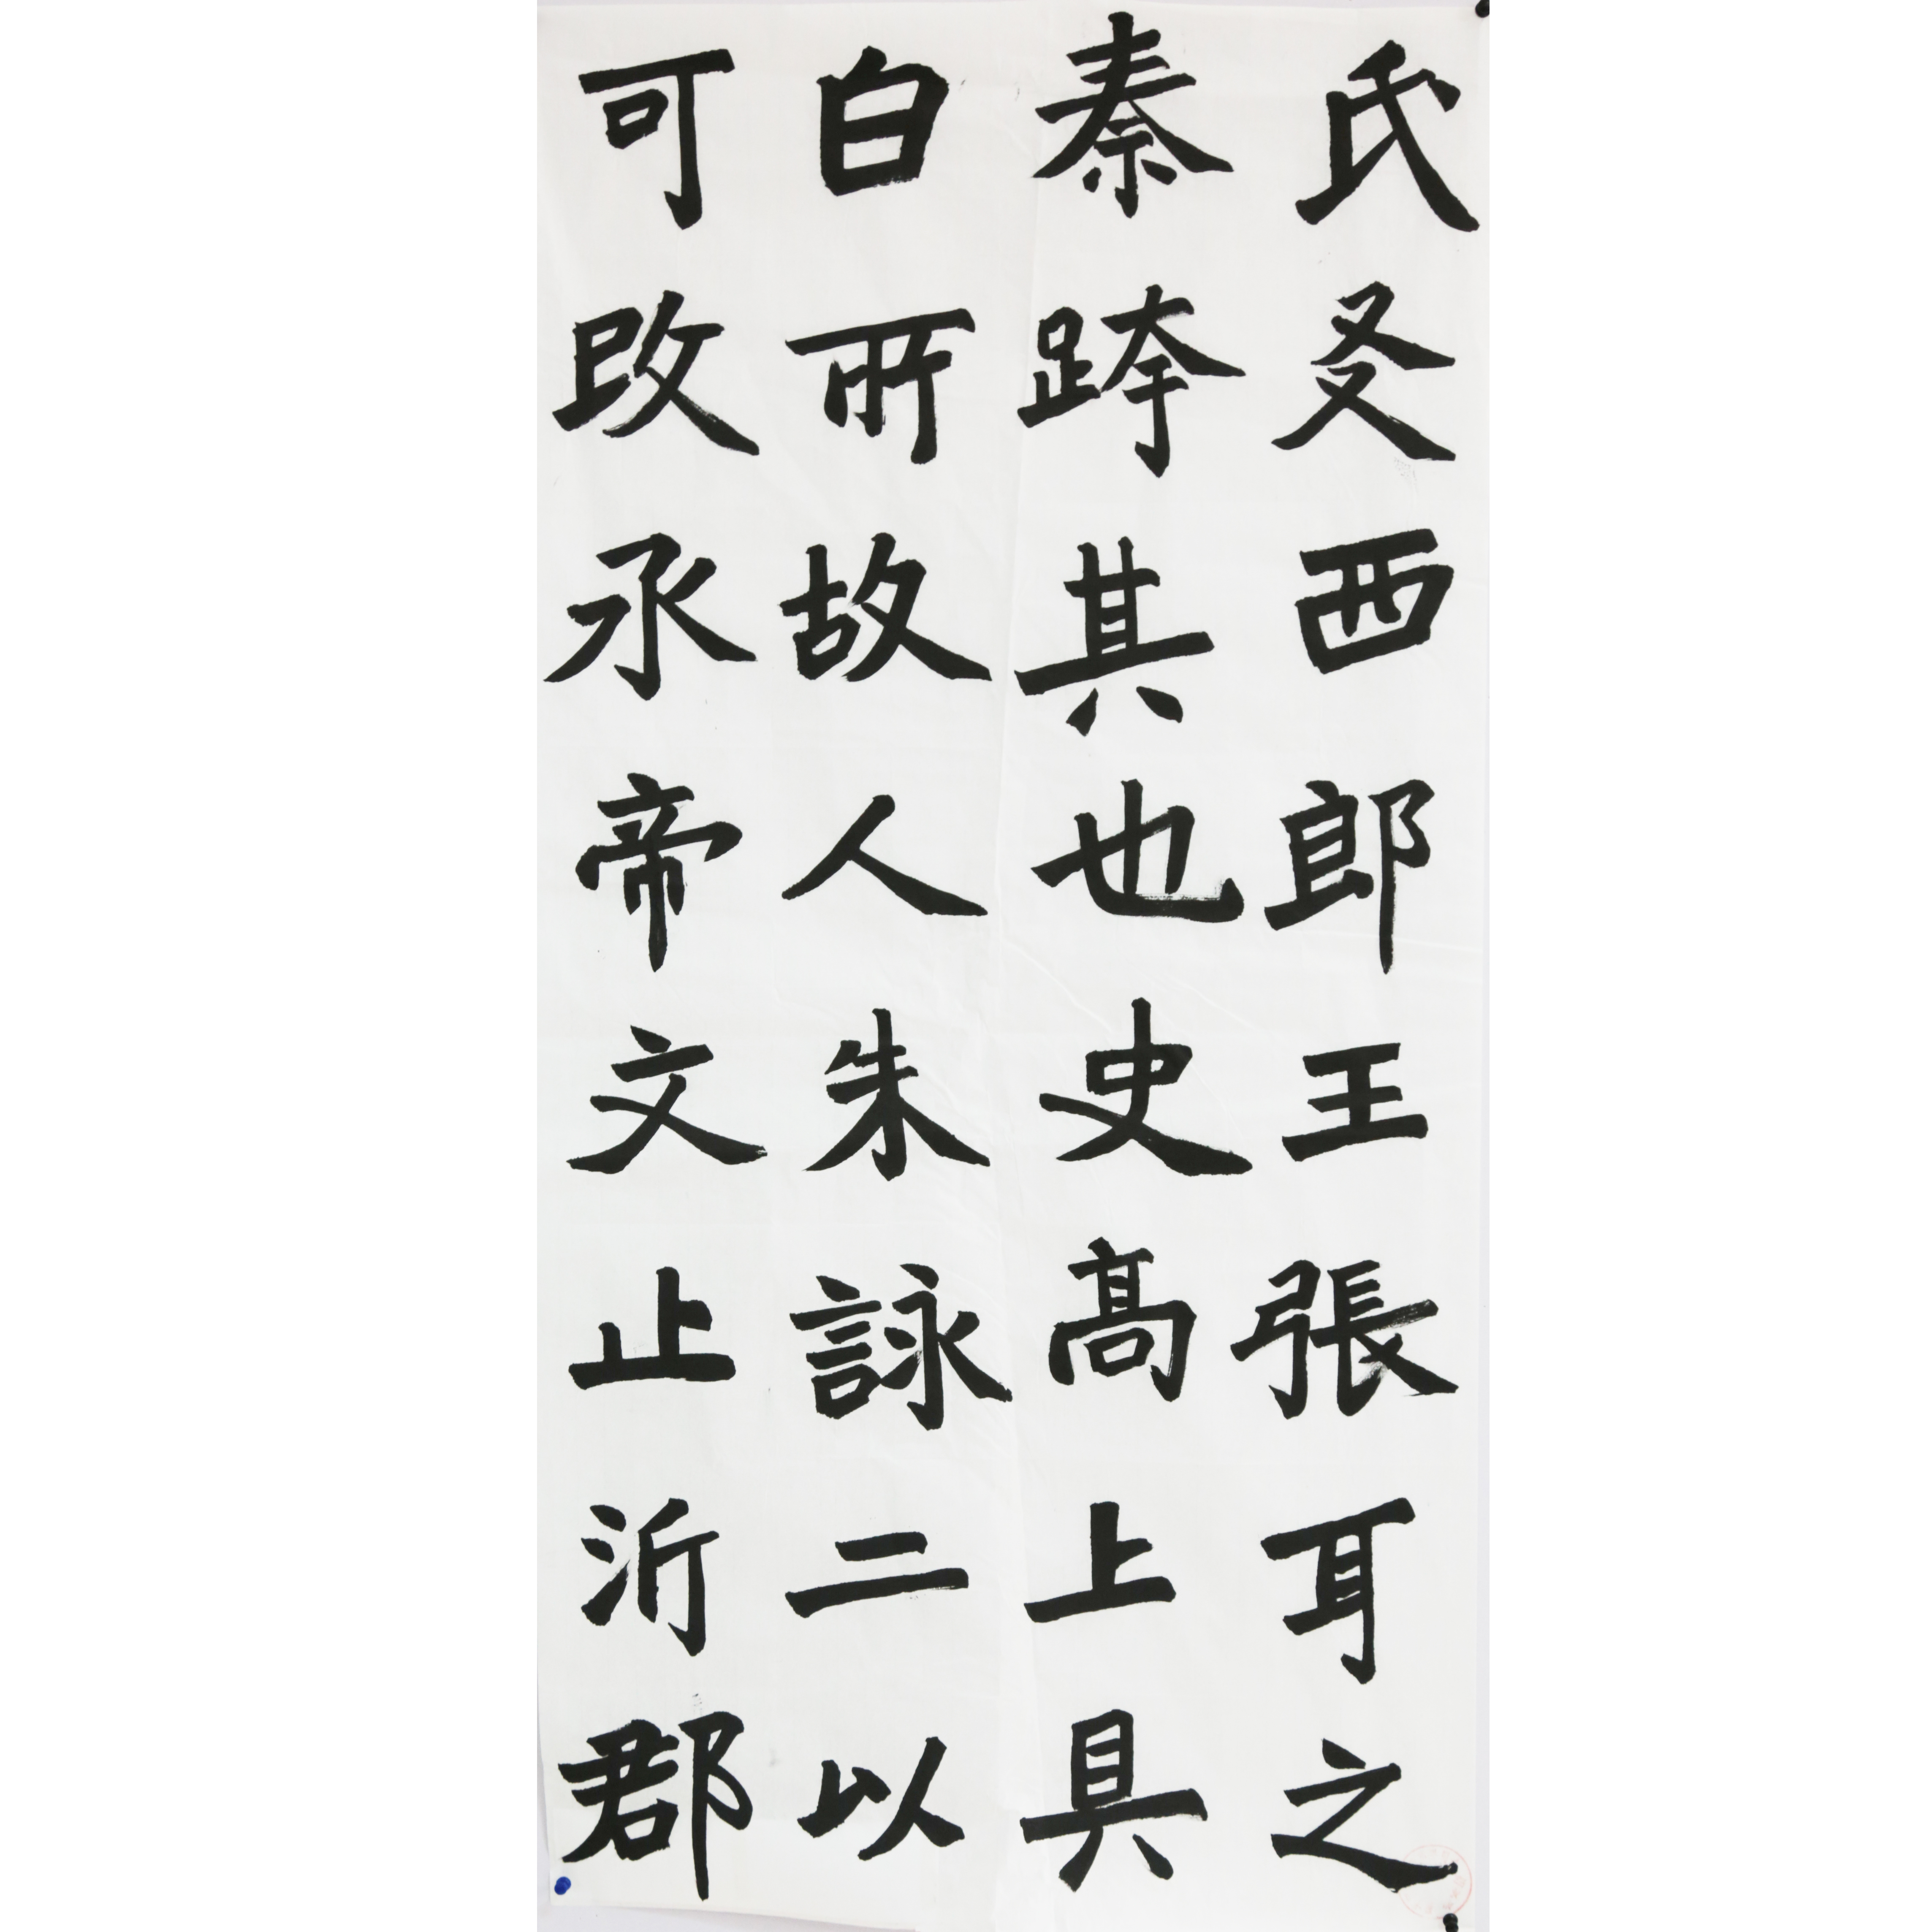 氏叐西郎王張耳之
秦跨其也史高上具
白所故人朱詠二以
可改承帝文止沂郡